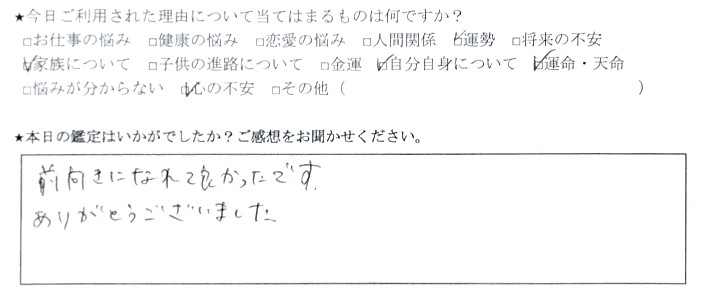 ★今日ご利用された理由について当てはまるものは何ですか？
□お仕事の悩み □健康の悩み □恋愛の悩み □人間関係 ☑運勢 □将来の不安
☑家族について □子供の進路について □金運 ☑自分自身について ☑運命・天命
□悩みが分からない ☑心の不安 □その他（ ）
★本日の鑑定はいかがでしたか？ご感想をお聞かせください。
前向きになれて良かったです.
ありがとうございました